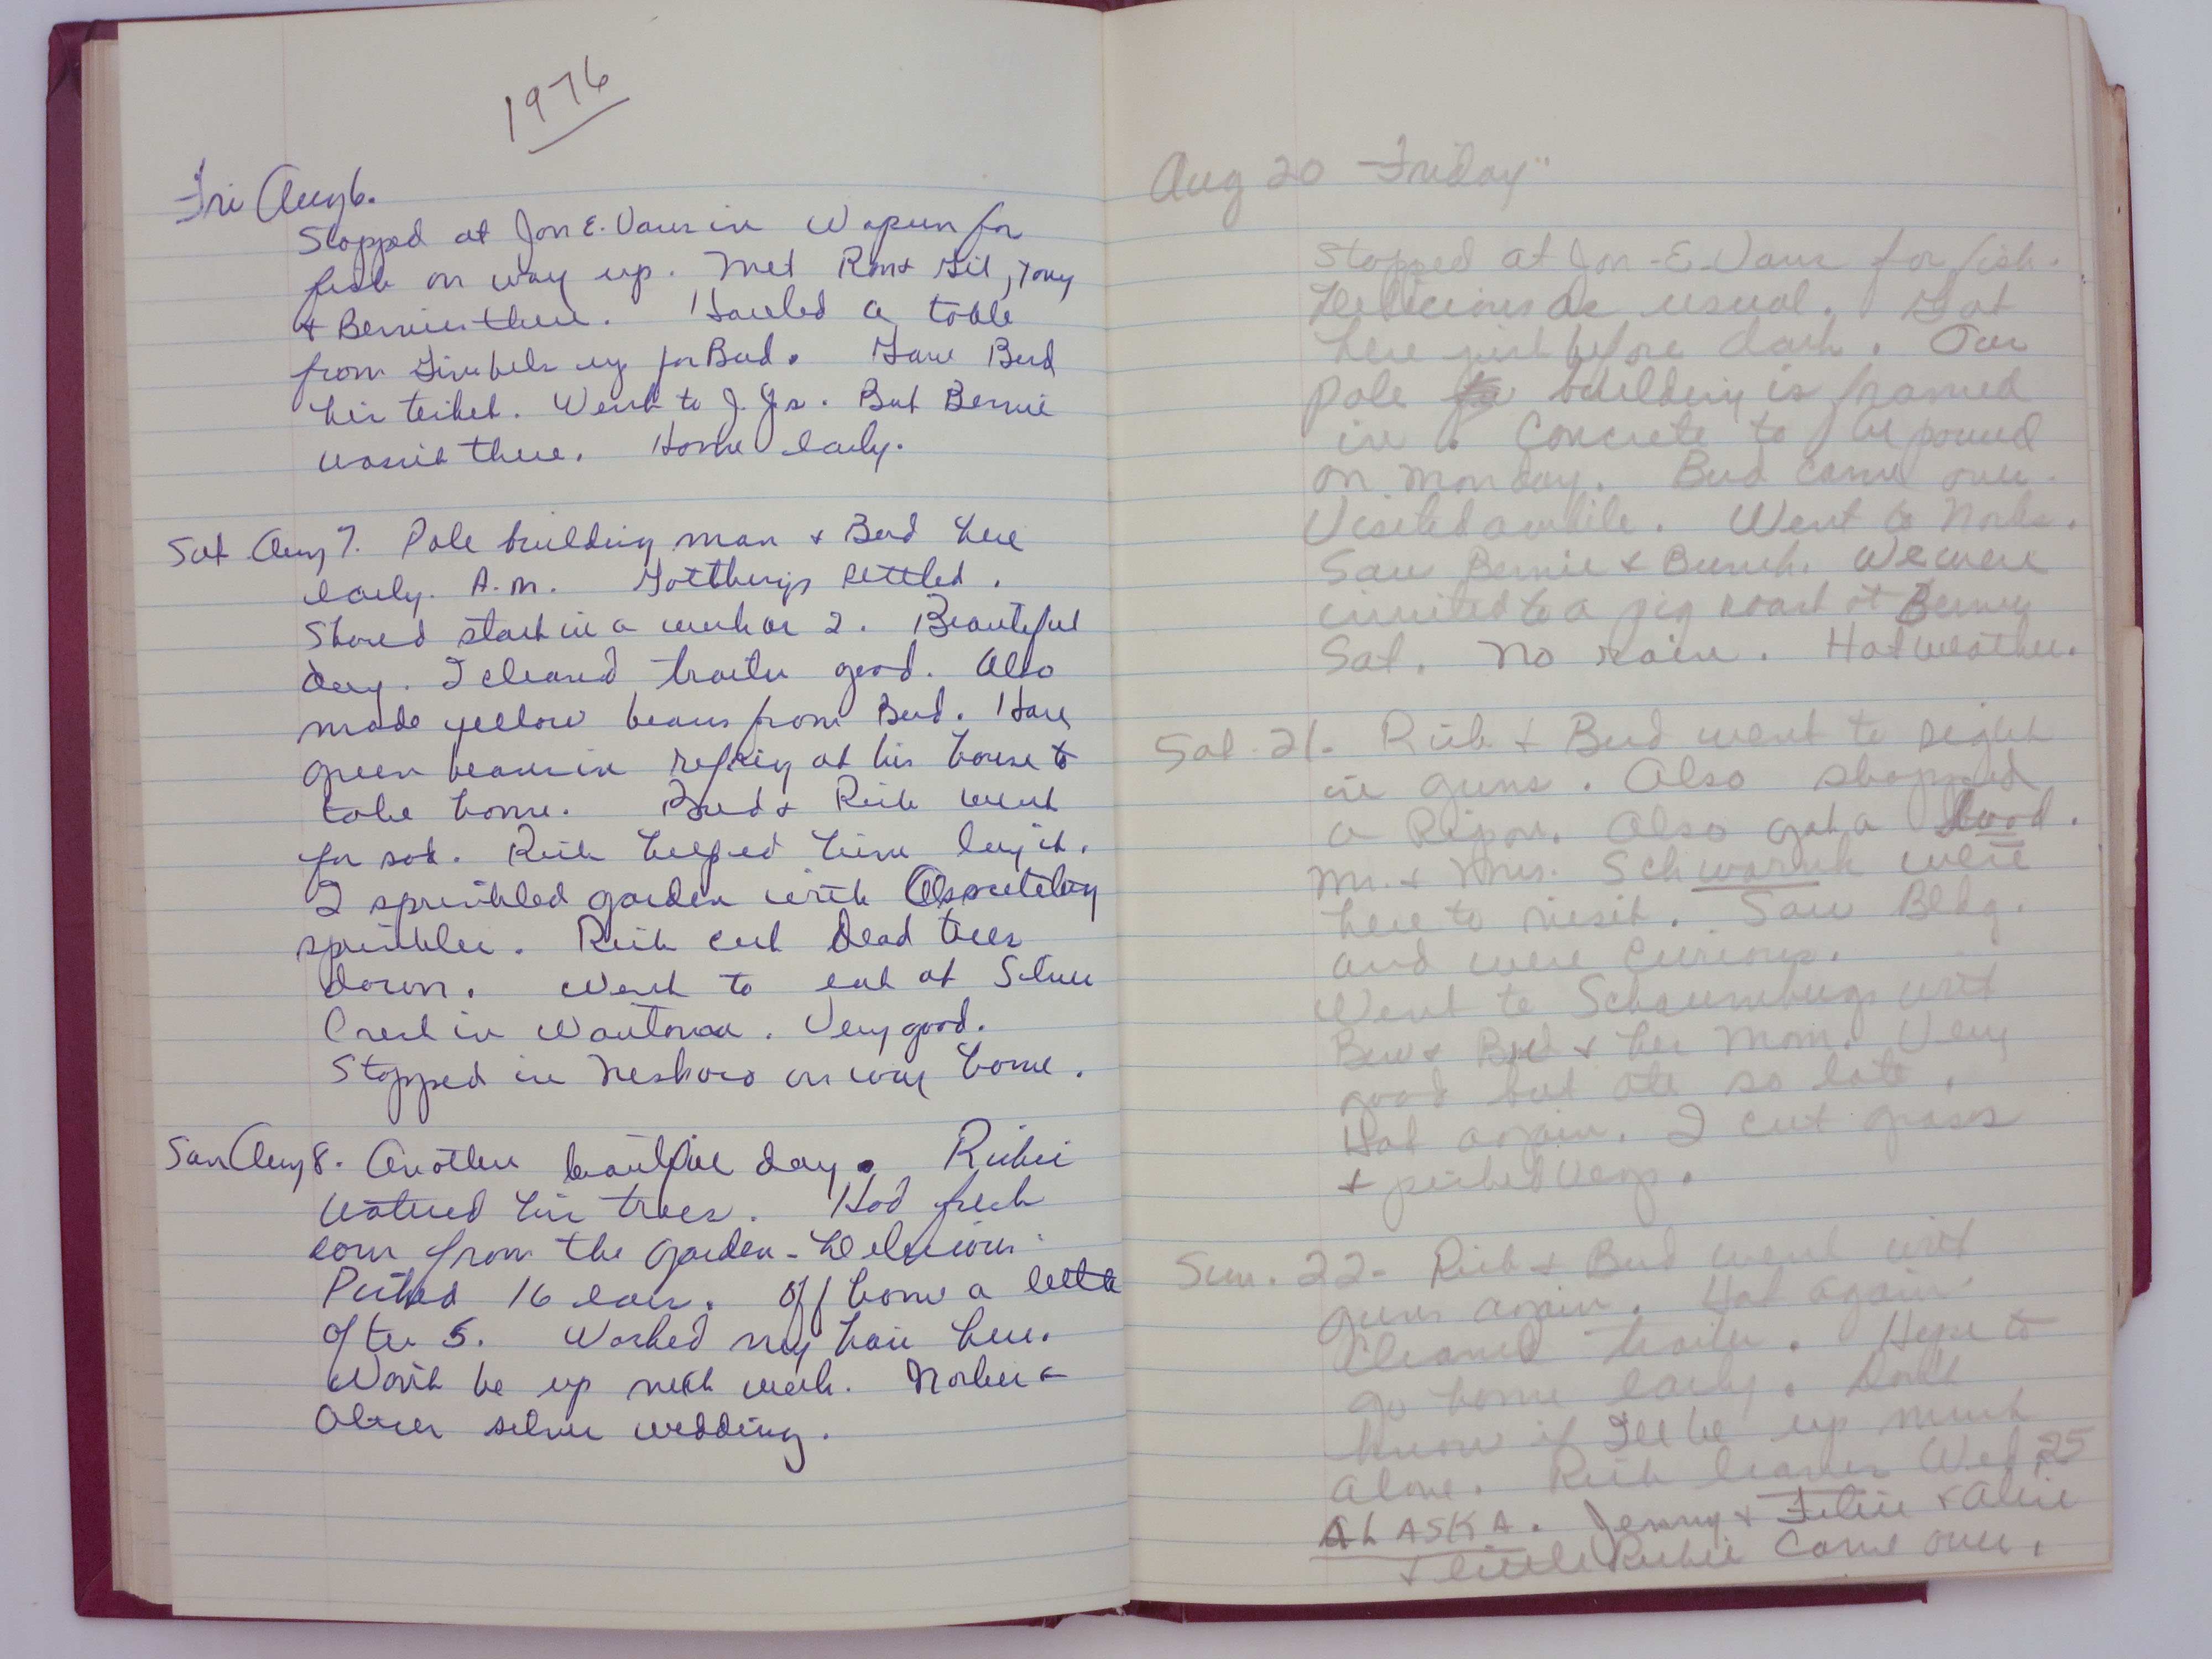 1976
Fri Aug 6.
Stopped at Jon E. Vans in Wapun for
fish on way up. Met Ron & Gil, Tony
& Bernies there. Hauled a table
from Gimbels up for Bud. Gave Bud
his ticket. Went to J.J.s. But Bernie
wasn't there. Home early.
Sat Aug 7. Pole building man & Bud here
early A.M. Everything settled.
Should start in a week or 2. Beautiful
day. I cleaned trailer good. Also
made yellow beans from Bud. Have
green beans in refrig at his house to
take home. Bud & Rich went
for sod. Rich helped him lay it.
I sprinkled garden with
sprinkler. Rich cut dead trees
down. Went to eat at Silver
Crest in Wautoma. Very good.
Stopped in Neshoro on way home.
Sun Aug 8. Another beautiful day. Richie
watered his trees. Had fresh
corn from the garden - Delicious.
Picked 16 ears. Off home a little
after 5. Washed my hair here.
Won't be up next week. Norbie &
silver wedding.
Aug 20 Friday
Stopped at Jon-E-Vans for fish.
Delicious as usual. Got
here just before dark. Our
pole building is framed
in. Concrete to be poured
on Monday. Bud came over.
Visited awhile. Went to Norbs.
Saw Bernie & Bunch. We were
invited to a pig roast at Berneys
Sat. No rain. Hot weather.
Sat. 21. Rich & Bud went to sight
in guns. Also shopped
a Ripon. Also got a
Mr. & Mrs. Schwarnk were
here to visit. Saw Bldg.
and were curious.
Went to Schaumburgs with
Bev & Bud & her Mom. Very
good but ate so late.
Hot again. I cut grass
& picked vegs.
Sun. 22. Rich & Bud went with
guns again. Hot again
Cleaned trailer. Hope to
go home early. Don't
know if I'll be up much
alone. Rich leaves Wed, 25
ALASKA. Jenny & Felix & Alice
& little Richie came over.